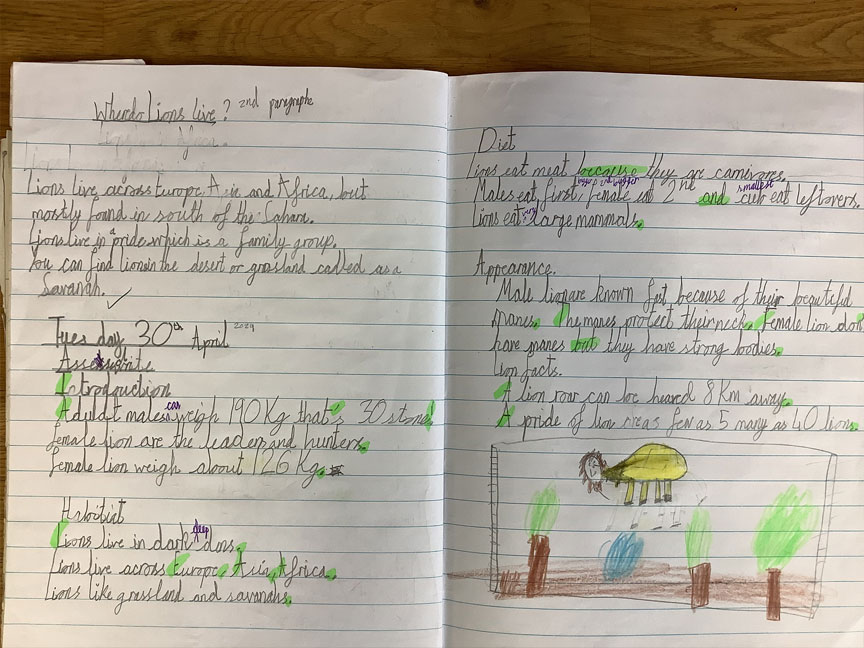 Where do Lions live? 2nd paragraphe
Lions live across Europe, Asia and Africa, but
mostly found in south of the Sahara.
Lions live in a pride which is a family group.
You can find lions in the desert or grassland called as a
Savanah.
Tuesday 30th April 2024
Introduction
Adult males can weigh 190 Kg that's 30 stone!
female lion are the leader and hunters.
female lion weigh about 126 Kg.
Habitiat
Lions live in dark deep dens.
Lions live across Europe, Asia, Africa.
Lions like grassland and savanahs.
Diet
Lions eat meat because they are carnivores.
Males eat first, female eat 2nd and smallest cub eat leftovers.
Lions eat large mammals.
Appearance.
Male lion are known fast because of their beautiful
manes. The manes protect their neck. Female lion don't
have manes but they have strong bodies.
Lion facts.
A lion roar can be heared 8 Km away.
A pride of lion as few as 5 many as 40 lions.